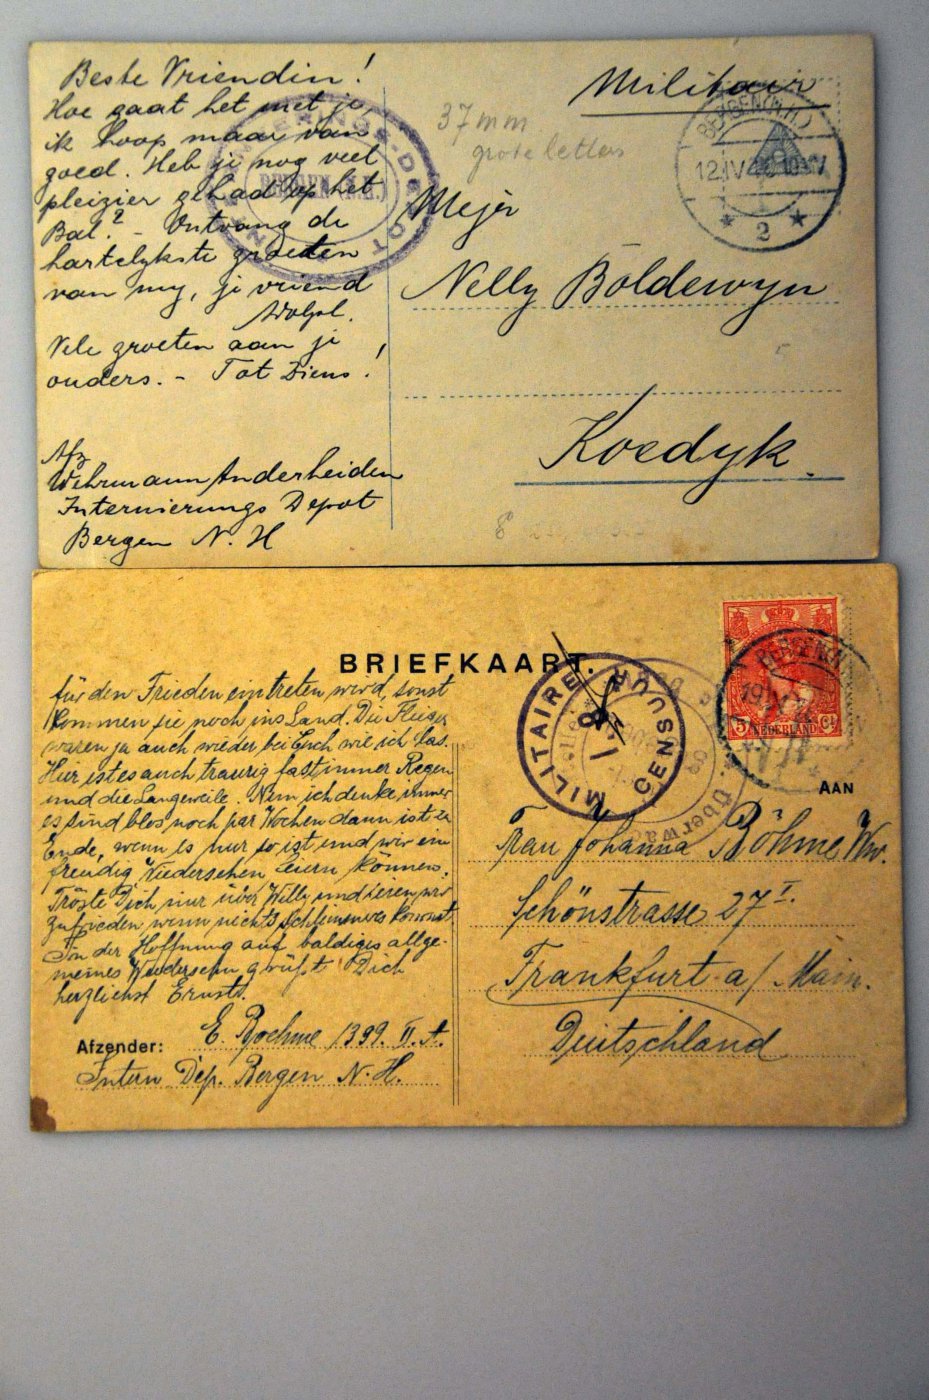 Beste Vriendin!
Hoe gaat het met je
ik hoop maar van
goed. Heb ji nog veel
pleizier gehad op het
Bal? - Ontvang de
hartelykste groeten
van my, ji vriend
Vele groeten aan ji
ouders. - Tot Diens!
Afz
Wehrmann Anderheiden
Internierungs Depot
Bergen N. H
INTERNEERINGS-DEPOT
BERGEN (N.H.)
37 mm
grote letters
Militair
BERGEN (N.H.)
12.IV
2
Mejr
Nelly Böldewyn
Koedyk.
BRIEFKAART.
für den Frieden eintreten wird, sonst
kommen sie noch ins Land. Die Flieger
waren ja auch wieder bei Euch wie ich las.
Hier ist es auch traurig fast immer Regen
und die Langeweile. Nun ich denke immer
es sind blos noch par Wochen dann ist es
Ende, wenn es nur so ist und wir ein
freudig Wiedersehen feiern können.
Tröste Dich nur über Willy und seien wir
zufrieden wenn nichts Schlimmeres kommt
In der Hoffnung auf baldiges allge-
meines Wiedersehn grüßt Dich
herzlichst Ernst.
Afzender: E. Boehme 1399. II. A.
Intern Dep. Bergen N. H.
MILITAIRE CENSUUR
1
Überwac
BERGEN
5 Ct
NEDERLAND
AAN
Frau Johanna Böhme Ww.
Schönstrasse 27 I.
Frankfurt a/ Main.
Deutschland